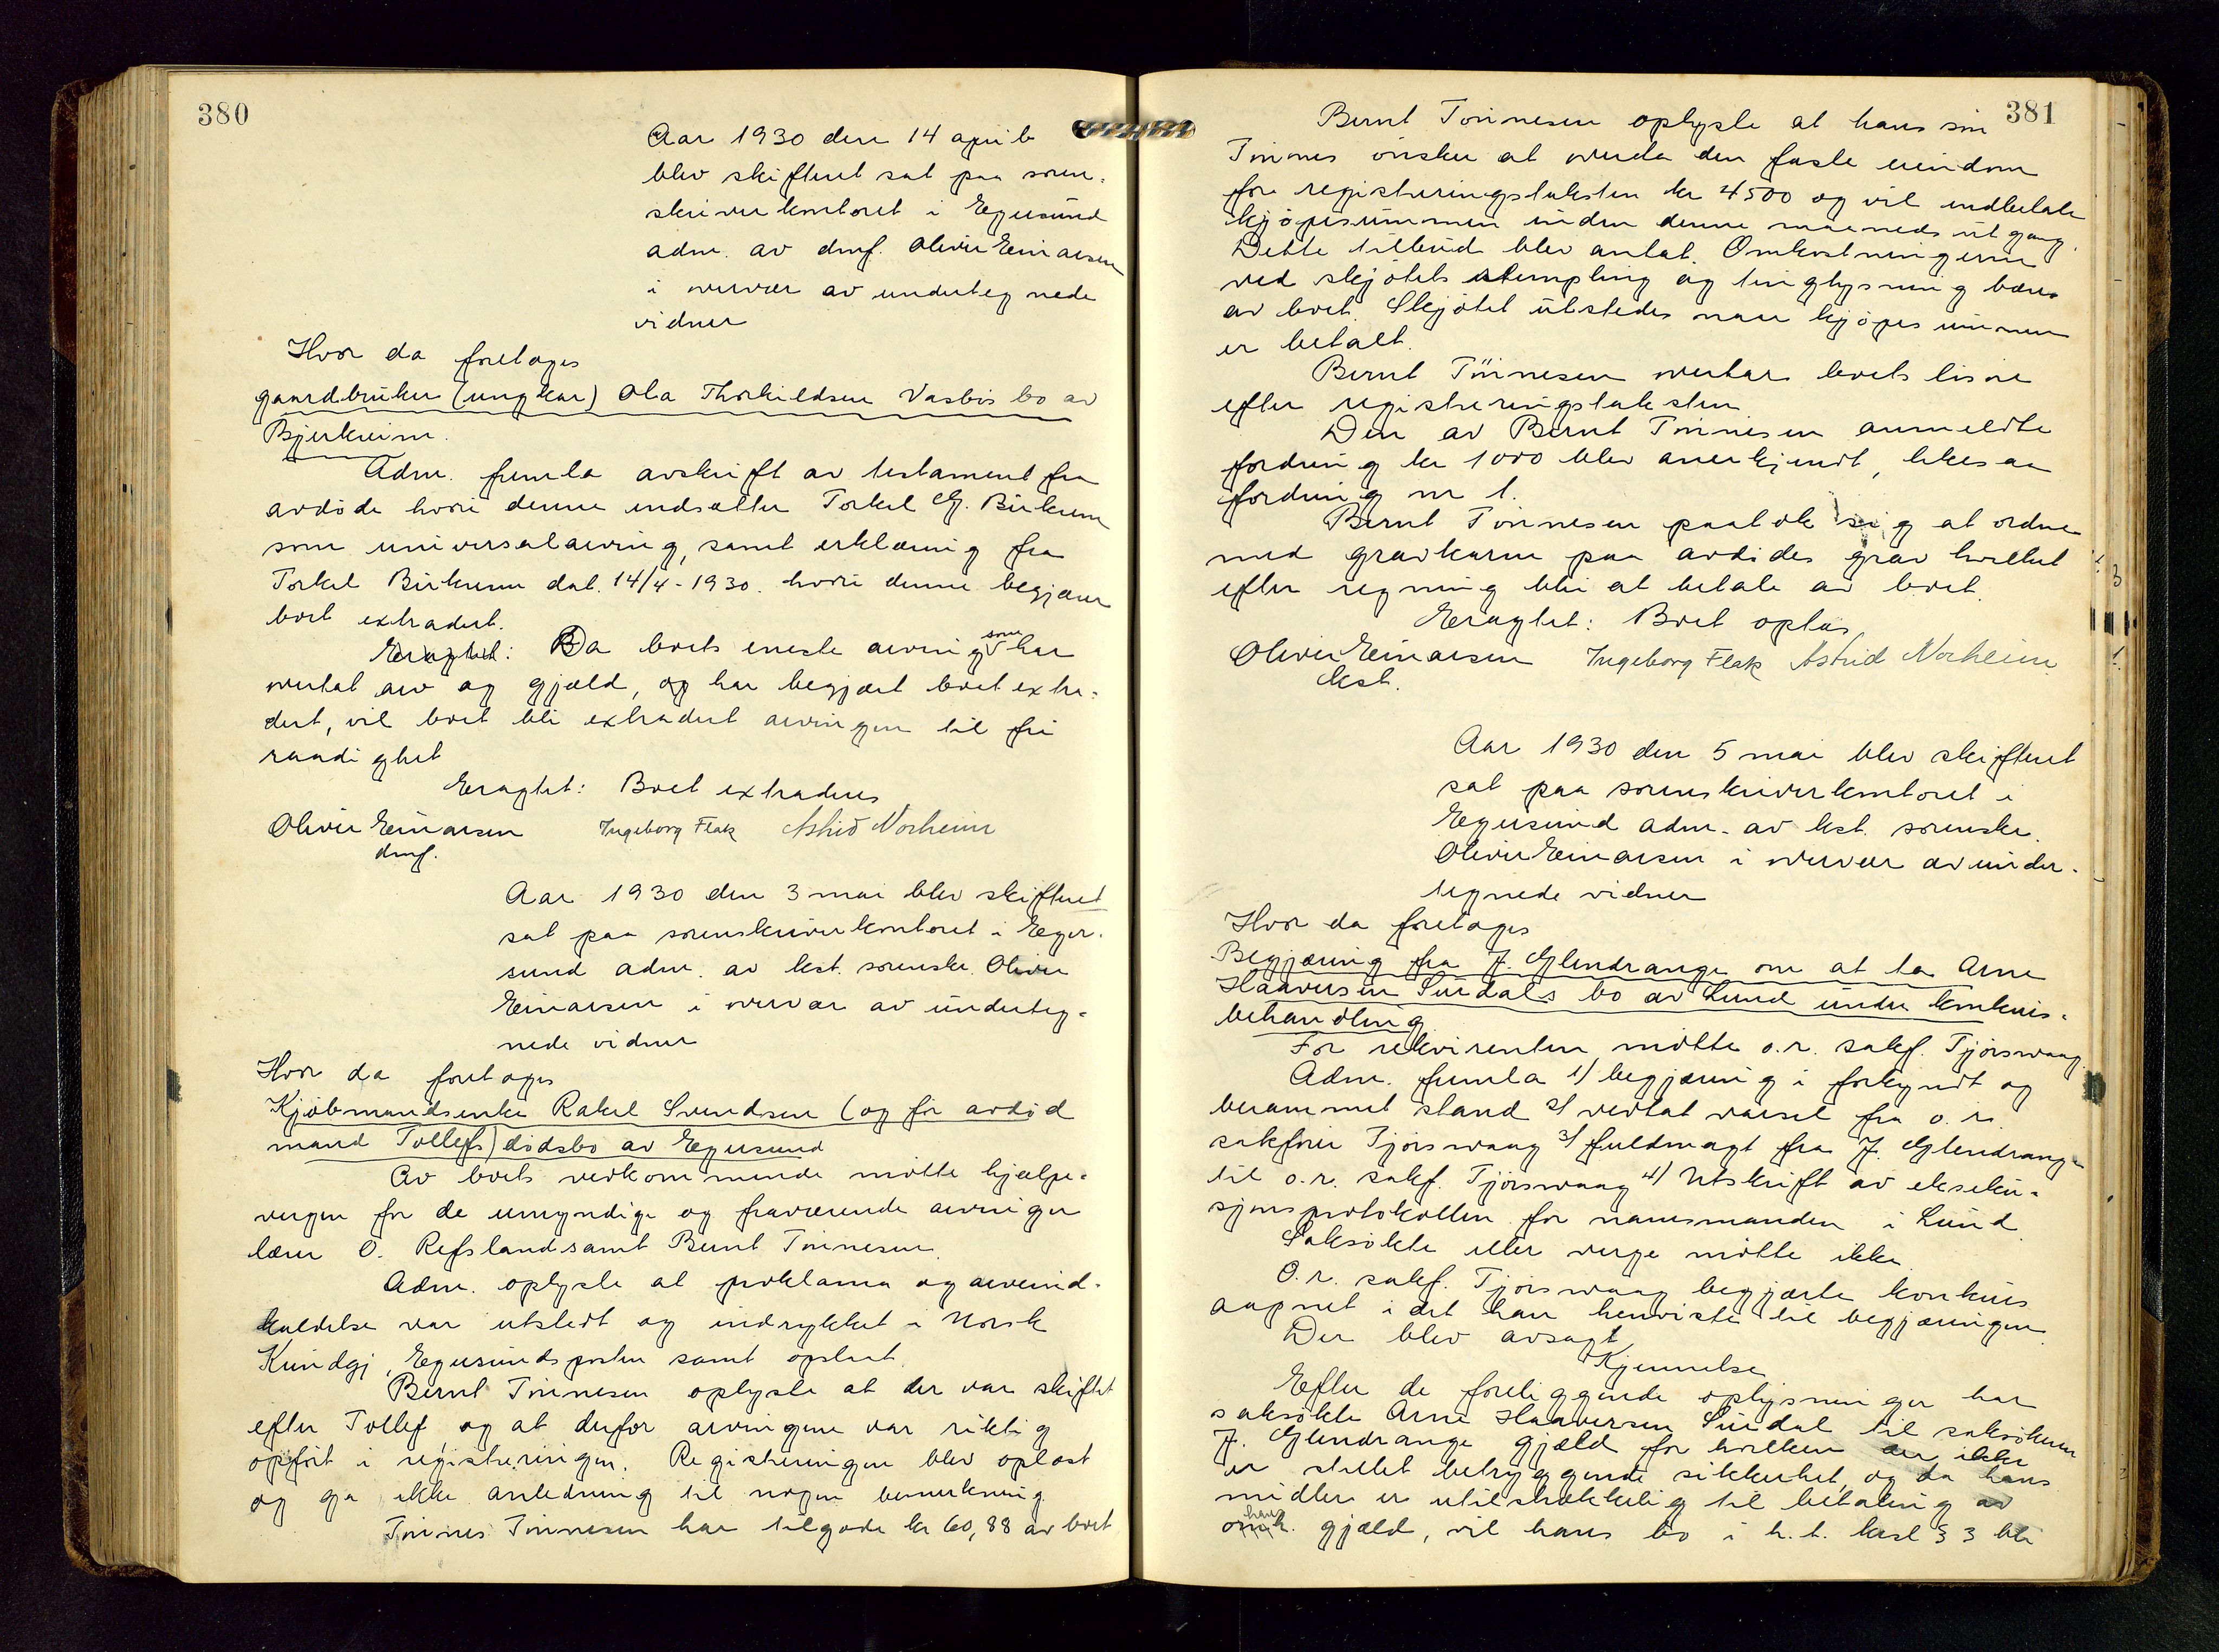 380
Aar 1930 den 14 april
blev skifteret sat paa soren-
skriverkontoret i Egersund
adm. av dmf. Olivir Einarsen
i overvær av underteg nede
vidner
Hvor da foretages
gaardbruker (ungkar) Ola Thorkildsen Vasbøs bo av
Bjerkreim.
Adm. fremla avskrift av testament fra
avdøde hvori denne indsætter Torkel G. Birkrem
som universalarving, samt erklæring fra
Torkel Birkrem dat. 14/4-1930. hvori denne begjærer
boet extradert.
Eragtet: Da boets eneste arving som har
overtat arv og gjæld, og har begjært boet extra-
dert, vil boet bli extradert arvingen til fri
raadighet
Eragtet: Boet extraderes
Olivir Einarsen Ingeborg Flak Astrid Norheim
dmf.
Aar 1930 den 3 mai blev skifteret
sat paa sorenskriverkontoret i Eger-
sund adm. av kst. sorenskr. Olivir
Einarsen i overvær av underteg-
nede vidner
Hvor da foretages
Kjøbmandsenke Rakel Svendsen (og før avdød
mand Tollefs) dødsbo av Egersund
Av boets vedkommende møtte hjælpe-
vergen for de umyndige og fraværende arvinger
lærer O. Refsland samt Bernt Tønnesen.
Adm. oplyste at proklama og arveind-
kaldelse var utstedt og indrykket i Norsk
Kundgj, Egersundsposten samt opslaat.
Bernt Tønnesen oplyste at der var skiftet
efter Tollef, og at derfor arvingene var riktig
opført i registreringen. Registreringen blev oplæst
og ga ikke anledning til nogen bemerkning
Tønnes Tønnesen har tilgode kr 60,88 av boet
381
Bernt Tønnesen oplyste at hans søn
Tønnes ønsker at overta den faste eiendom
for registreringstaksten kr 4500 og vil indbetale
kjøpesummen inden denne maaneds utgang.
Dette tilbud blev antat. Omkostningerne
ved skjøtets stempling og tinglysning bæres
av boet. Skjøtet utstedes naar kjøpesummen
er betalt.
Bernt Tønnesen overtar boets løsøre
efter registreringstaksten
Den av Bernt Tønnesen anmeldte
fordring kr 1000 blev anerkjendt, likesaa
fordring nr 1.
Bernt Tønnesen paatok sig at ordne
med gravkarm paa avdødes grav hvilket
efter regning blir at betale av boet.
Eragtet: Boet optas
Olivir Einarsen Ingeborg Flak Astrid Norheim
kst.
Aar 1930 den 5 mai blev skifteret
sat paa sorenskriverkontoret i
Egersund adm. av kst. sorenskr.
Olivir Einarsen i overvær av under-
tegnede vidner
Hvor da foretages
Begjæring fra J. Glendrange om at ta Arne
Haaversen Surdals bo av Lund under konkurs-
behandling
For rekvirenten møtte o.r. sakf. Tjørswaag
Adm. fremla 1/ begjæring i forkyndt og
berammet stand 2/ vedtat varsel fra o.r.
sakfører Tjørswaag 3/ fuldmagt fra J. Glendrange
til o.r. sakf. Tjørswaag 4/ Utskrift av ekseku-
sjonsprotokollen for namsmanden i Lund
Saksøkte eller verge møtte ikke.
O.r. sakf. Tjørswaag begjærte konkurs
aapnet i det han henviste til begjæringen
Der blev avsagt
Kjennelse
Efter de foreliggende oplysninger har
saksøkte Arne Haaversen Surdal til saksøkeren
J. Glendrange gjæld for hvilken der ikke
er stillet betryggende sikkerhet, og da hans
midler er utilstrekkelig til betaling av
hans gjæld, vil hans bo i h. t. ksl § 3 bli